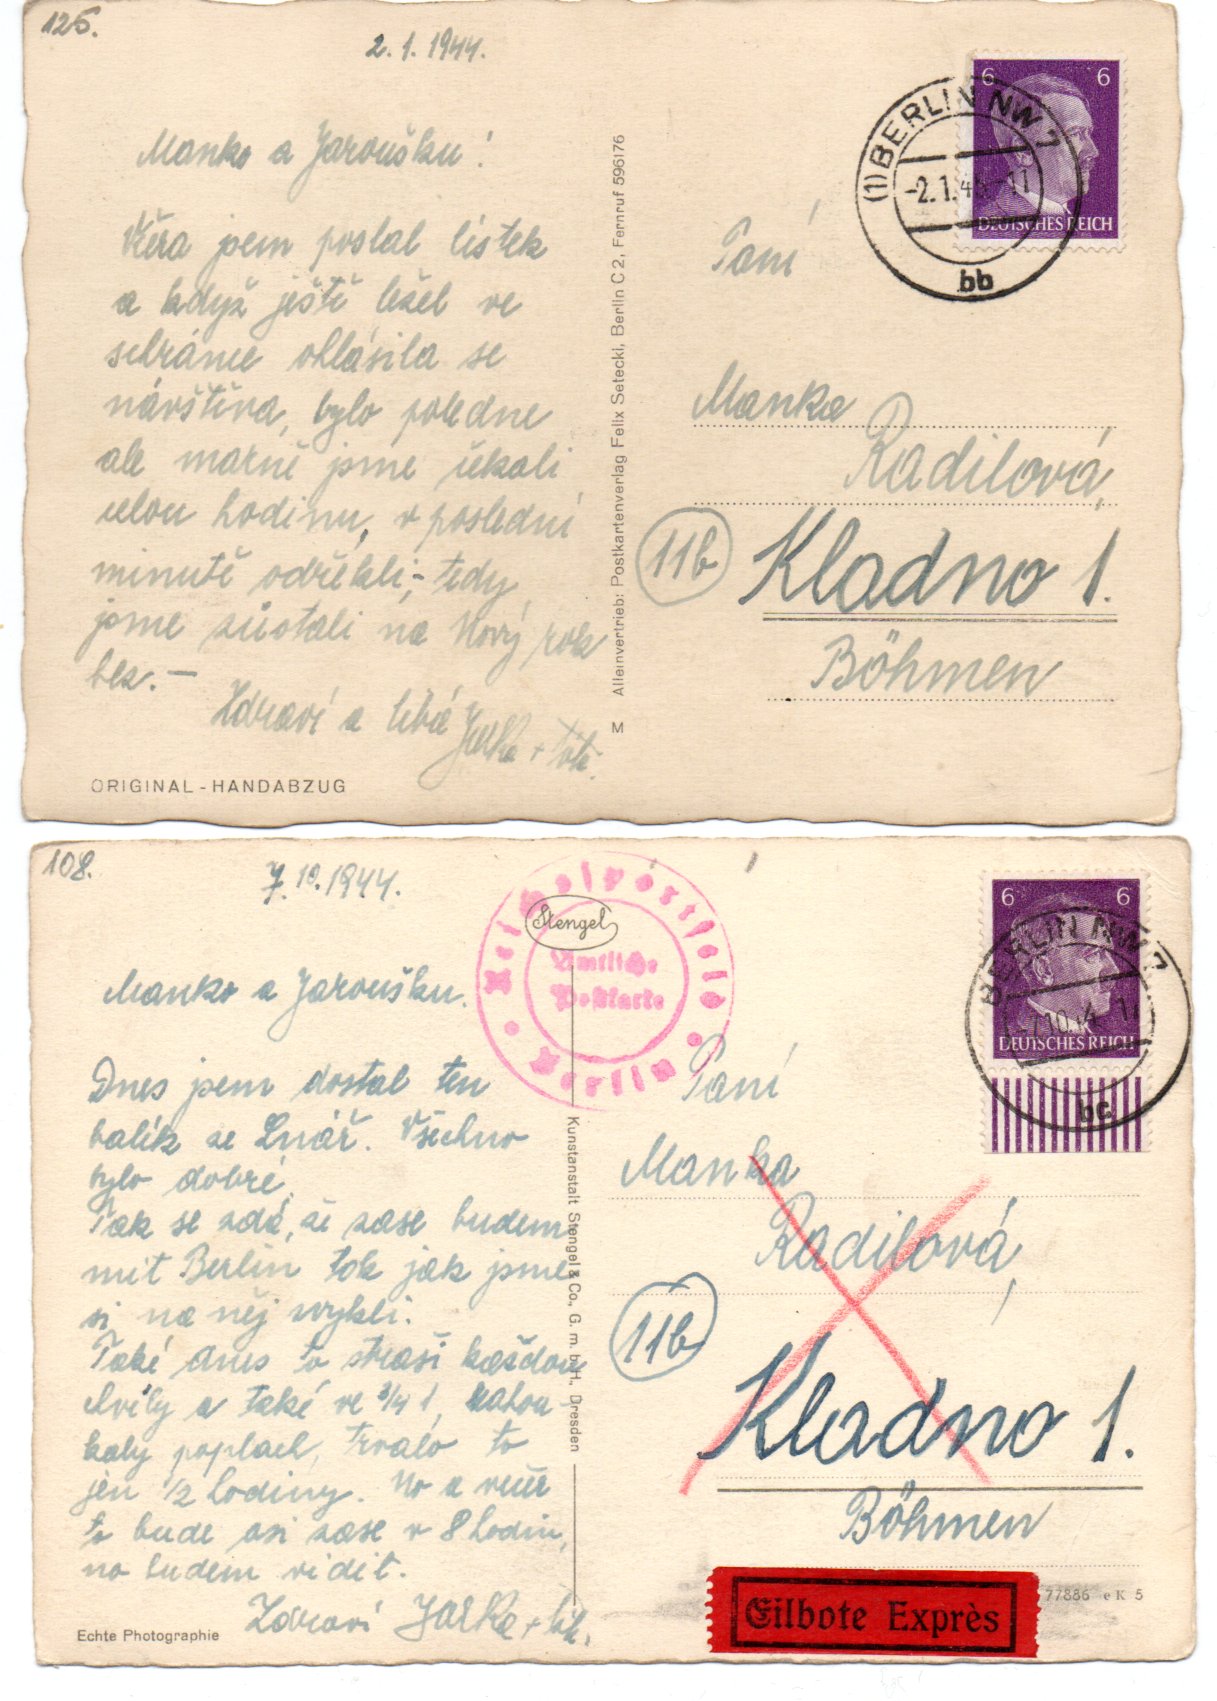 126.
2. 1. 1944.
6 6
(1) BERLIN NW 7
-2.1.45-17
bb
DEUTSCHES REICH
Manko a Jaroušku!
Včera jsem poslal lístek
a když ještě ležel ve
schránce ohlásila se
návštěva, bylo poledne
ale marně jsme čekali
celou hodinu, v poslední
minutě odřekli,- tedy
jsme zůstali na Nový rok
bez.—
Zdraví a líbá Jarka +
ORIGINAL - HANDABZUG
M Alleinvertrieb: Postkartenverlag Felix Setecki, Berlin C 2, Fernruf 596176
Paní
Manka
Radilová,
11b Kladno 1.
Böhmen
108.
7. 10. 1944.
Stengel
Amtliche
Postkarte
Berlin
6 6
BERLIN NW 7
bc
DEUTSCHES REICH
Manko a Jaroušku.
Dnes jsem dostal ten
balík ze Lnář. Všechno
bylo dobré.
Tak se zdá, že zase budem
mít Berlin tak jak jsme
si na něj zvykli.
Také dnes to straší každou
chvíly a také ve 3/4 1, zahou-
kaly poplach, trvalo to
jen 1/2 hodiny. No a večer
to bude asi zase v 8 hodin,
no budem vidět.
Zdraví Jarka +
Echte Photographie
Kunstanstalt Stengel & Co., G. m. b. H., Dresden
Paní
Manka
Radilová,
11b Kladno 1.
Böhmen
77886 e K 5
Eilbote Exprès